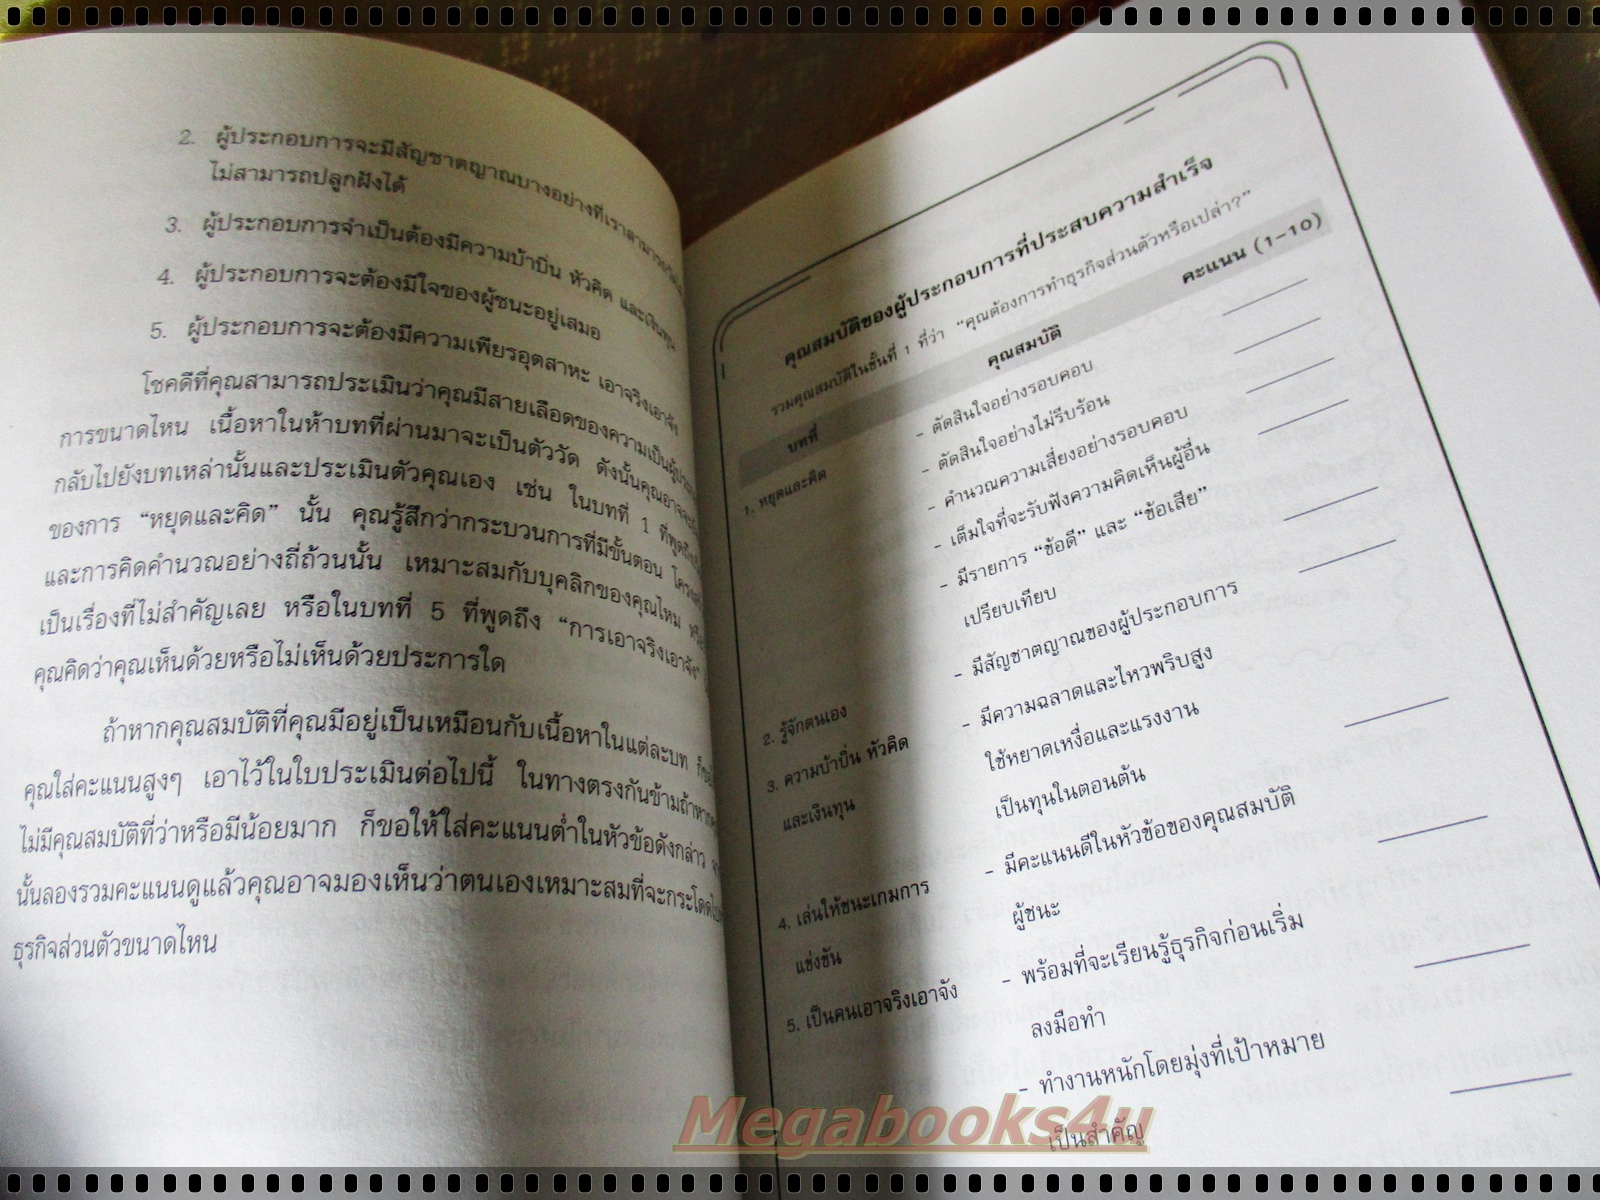 2. ผู้ประกอบการจะมีสัญชาตญาณบางอย่างที่เราสามารถ
ไม่สามารถปลูกฝังได้
3. ผู้ประกอบการจำเป็นต้องมีความบ้าบิ่น หัวคิด และเงินทุน
4. ผู้ประกอบการจะต้องมีใจของผู้ชนะอยู่เสมอ
5. ผู้ประกอบการจะต้องมีความเพียรอุตสาหะ เอาจริงเอาจัง
โชคดีที่คุณสามารถประเมินว่าคุณมีสายเลือดของความเป็น
การขนาดไหน เนื้อหาในห้าบทที่ผ่านมาจะเป็นตัววัด ดังนั้นคุณอาจจะ
กลับไปยังบทเหล่านั้นและประเมินตัวคุณเอง เช่น ในบทที่ 1 ที่พูดถึง
ของการ “หยุดและคิด” นั้น คุณรู้สึกว่ากระบวนการที่มีขั้นตอน
และการคิดคำนวณอย่างถี่ถ้วนนั้น เหมาะสมกับบุคลิกของคุณไหม
เป็นเรื่องที่ไม่สำคัญเลย หรือในบทที่ 5 ที่พูดถึง “การเอาจริงเอาจัง”
คุณคิดว่าคุณเห็นด้วยหรือไม่เห็นด้วยประการใด
ถ้าหากคุณสมบัติที่คุณมีอยู่เป็นเหมือนกับเนื้อหาในแต่ละบท
คุณใส่คะแนนสูงๆ เอาไว้ในใบประเมินต่อไปนี้ ในทางตรงกันข้ามถ้าหาก
ไม่มีคุณสมบัติที่ว่าหรือมีน้อยมาก ก็ขอให้ใส่คะแนนต่ำในหัวข้อดังกล่าว
นั้นลองรวมคะแนนดูแล้วคุณอาจมองเห็นว่าตนเองเหมาะสมที่จะกระโดด
ธุรกิจส่วนตัวขนาดไหน
คุณสมบัติของผู้ประกอบการที่ประสบความสำเร็จ
รวมคุณสมบัติในชั้นที่ 1 ที่ว่า “คุณต้องการทำธุรกิจส่วนตัวหรือเปล่า?”
บทที่ คุณสมบัติ คะแนน (1-10)
1. หยุดและคิด - ตัดสินใจอย่างรอบคอบ
- ตัดสินใจอย่างไม่รีบร้อน
- คำนวณความเสี่ยงอย่างรอบคอบ
- เต็มใจที่จะรับฟังความคิดเห็นผู้อื่น
- มีรายการ “ข้อดี” และ “ข้อเสีย”
เปรียบเทียบ
2. รู้จักตนเอง - มีสัญชาตญาณของผู้ประกอบการ
3. ความบ้าบิ่น หัวคิด - มีความฉลาดและไหวพริบสูง
และเงินทุน ใช้หยาดเหงื่อและแรงงาน
เป็นทุนในตอนต้น
4. เล่นให้ชนะเกมการ - มีคะแนนดีในหัวข้อของคุณสมบัติ
แข่งขัน ผู้ชนะ
5. เป็นคนเอาจริงเอาจัง - พร้อมที่จะเรียนรู้ธุรกิจก่อนเริ่ม
ลงมือทำ
- ทำงานหนักโดยมุ่งที่เป้าหมาย
เป็นสำคัญ
Megabooks4u